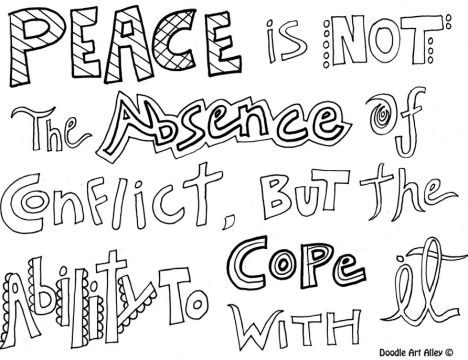 PEACE is NOT
The Absence Of
Conflict, BUT the
Ability To COPE
WITH it
Doodle Art Alley ©